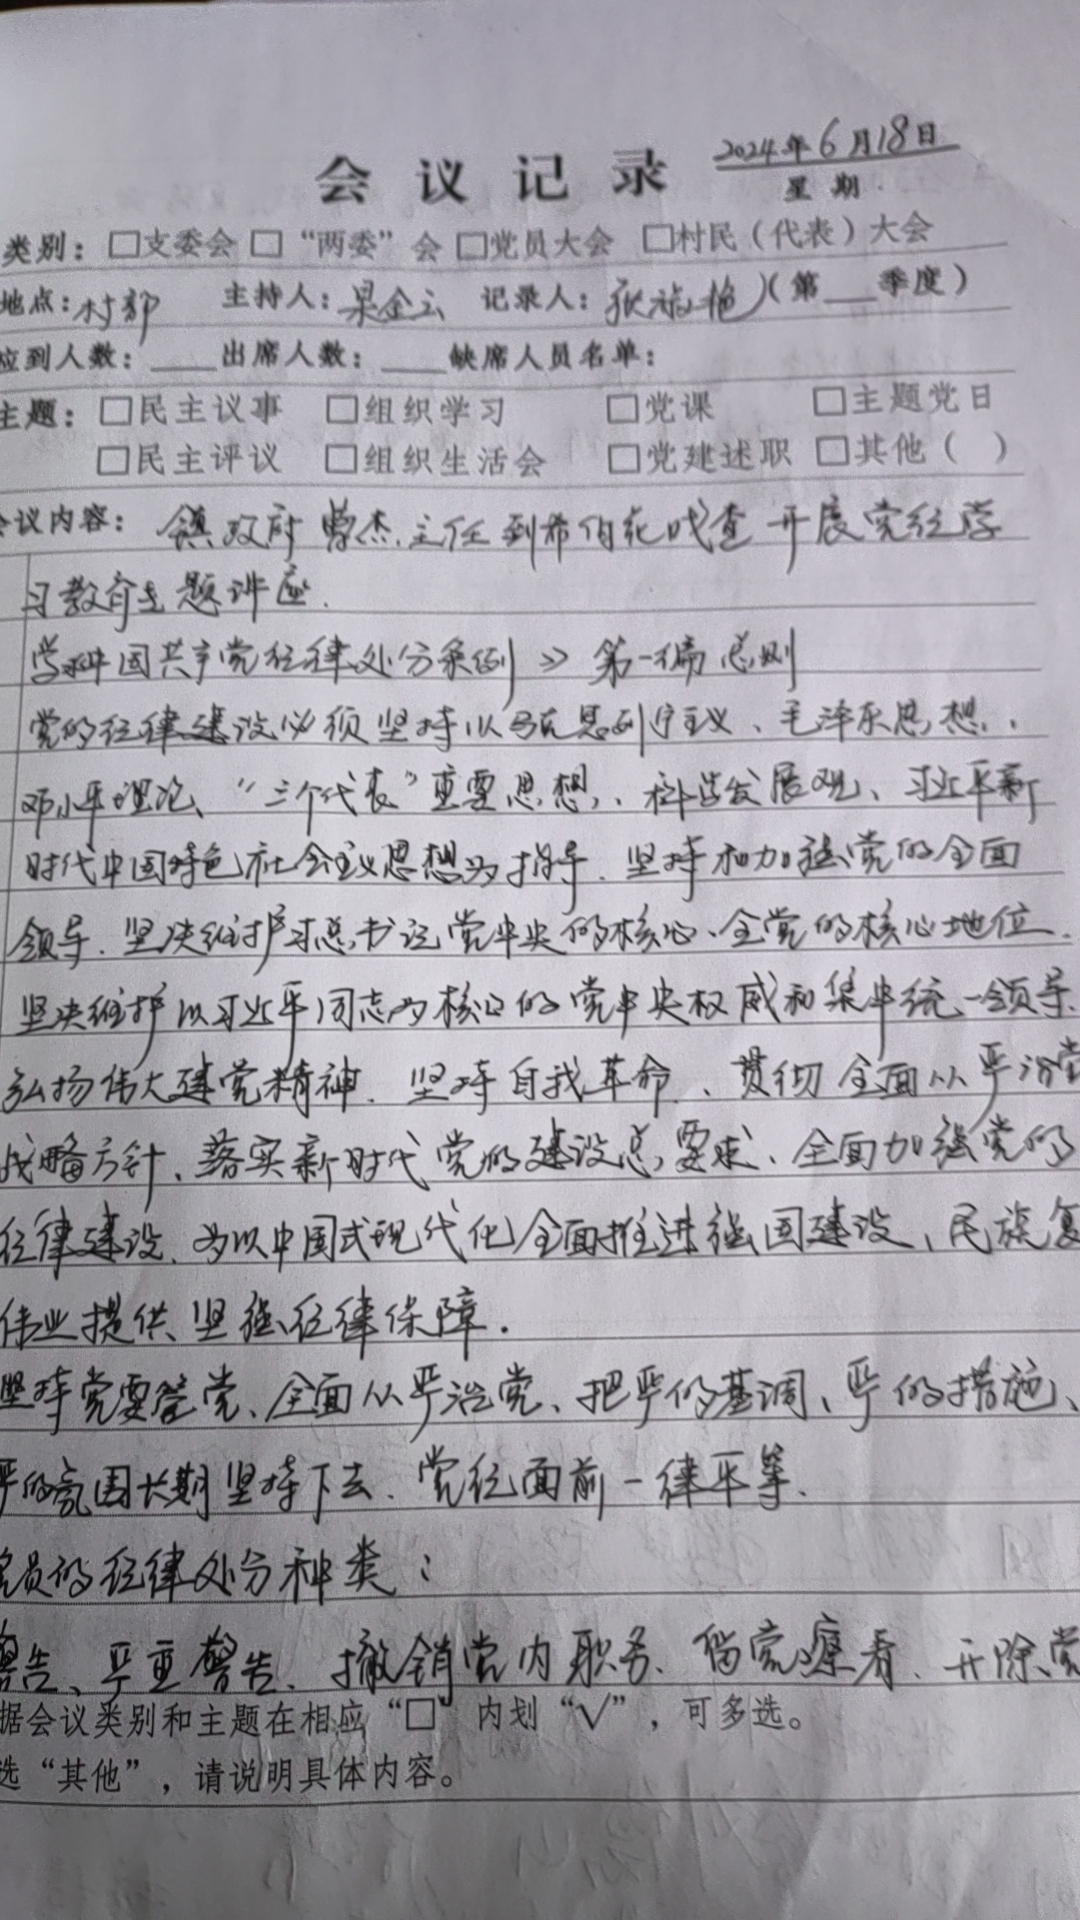 会议记录
2024年6月18日
星期
类别：□支委会 □“两委”会 □党员大会 □村民（代表）大会
地点：村部 主持人：金云 记录人：张 艳（第___季度）
应到人数：____出席人数：____缺席人员名单：
主题：□民主议事 □组织学习 □党课 □主题党日
□民主评议 □组织生活会 □党建述职 □其他（ ）
会议内容：镇政府曹杰主任到希伯花嘎查开展党纪学
习教育主题讲座.
学习中国共产党纪律处分条例》第一编总则
党的纪律建设必须坚持以马克思列宁主义、毛泽东思想、
邓小平理论、“三个代表”重要思想、科学发展观、习近平新
时代中国特色社会主义思想为指导.坚持和加强党的全面
领导.坚决维护习总书记党中央的核心、全党的核心地位.
坚决维护以习近平同志为核心的党中央权威和集中统一领导.
弘扬伟大建党精神.坚持自我革命、贯彻全面从严治党
战略方针、落实新时代党的建设总要求、全面加强党的
纪律建设、为以中国式现代化全面推进强国建设、民族复
伟业提供坚强纪律保障.
坚持党要管党、全面从严治党、把严的基调、严的措施、
严的氛围长期坚持下去.党纪面前一律平等.
党员的纪律处分种类：
警告、严重警告、撤销党内职务、留党察看、开除党
据会议类别和主题在相应“□”内划“√”，可多选。
选“其他”，请说明具体内容。